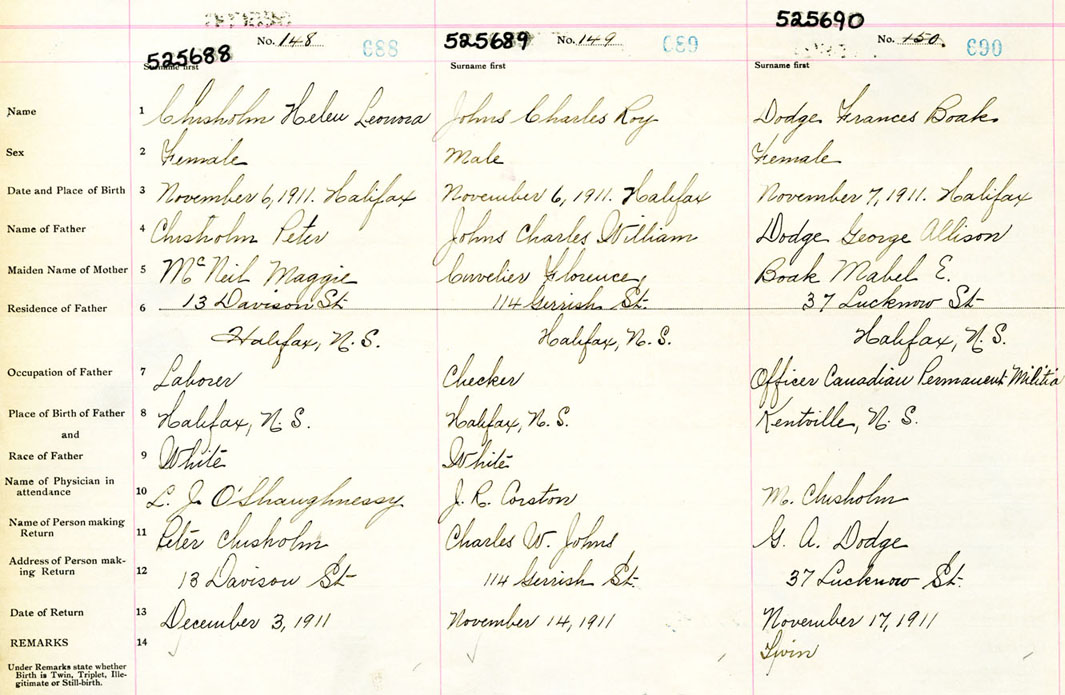 525688 No. 148 688
525689 No. 149 689
525690 No. 150. 690
Surname first Surname first Surname first
Name 1 Chisholm Helen Leonora Johns Charles Roy Dodge Frances Boak
Sex 2 Female Male Female
Date and Place of Birth 3 November 6, 1911. Halifax November 6, 1911. Halifax November 7, 1911. Halifax
Name of Father 4 Chisholm Peter Johns Charles William Dodge George Allison
Maiden Name of Mother 5 McNeil Maggie Cuvelier Florence Boak Mabel E.
Residence of Father 6 13 Davison St 114 Gerrish St. 37 Lucknow St
Halifax, N.S. Halifax, N.S. Halifax, N.S.
Occupation of Father 7 Laborer Checker Officer Canadian Permanent Militia
Place of Birth of Father 8 Halifax, N.S. Halifax, N.S. Kentville, N.S.
and
Race of Father 9 White White
Name of Physician in
attendance 10 L. J. O'Shaughnessy J. R. Corston M. Chisholm
Name of Person making
Return 11 Peter Chisholm Charles W. Johns G. A. Dodge
Address of Person mak-
ing Return 12 13 Davison St 114 Gerrish St. 37 Lucknow St.
Date of Return 13 December 3, 1911 November 14, 1911 November 17, 1911
REMARKS 14 Twin
Under Remarks state whether
Birth is Twin, Triplet, Ille-
gitimate or Still-birth.